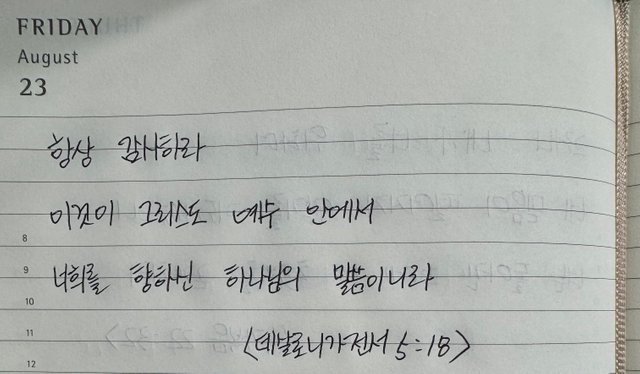 FRIDAY
August
23
항상 감사하라
이것이 그리스도 예수 안에서
8
9 너희를 향하신 하나님의 말씀이니라
10
11 <데살로니가전서 5:18>
12